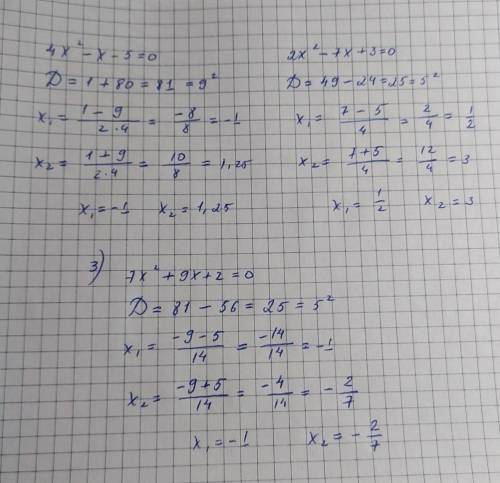 4x² - x - 5 = 0
D = 1 + 80 = 81 = 9²
x₁ = (1 - 9)/(2·4) = -8/8 = -1
x₂ = (1 + 9)/(2·4) = 10/8 = 1,25
x₁ = -1 x₂ = 1,25
2x² - 7x + 3 = 0
D = 49 - 24 = 25 = 5²
x₁ = (7 - 5)/4 = 2/4 = 1/2
x₂ = (7 + 5)/4 = 12/4 = 3
x₁ = 1/2 x₂ = 3
3)
7x² + 9x + 2 = 0
D = 81 - 56 = 25 = 5²
x₁ = (-9 - 5)/14 = -14/14 = -1
x₂ = (-9 + 5)/14 = -4/14 = -2/7
x₁ = -1 x₂ = -2/7